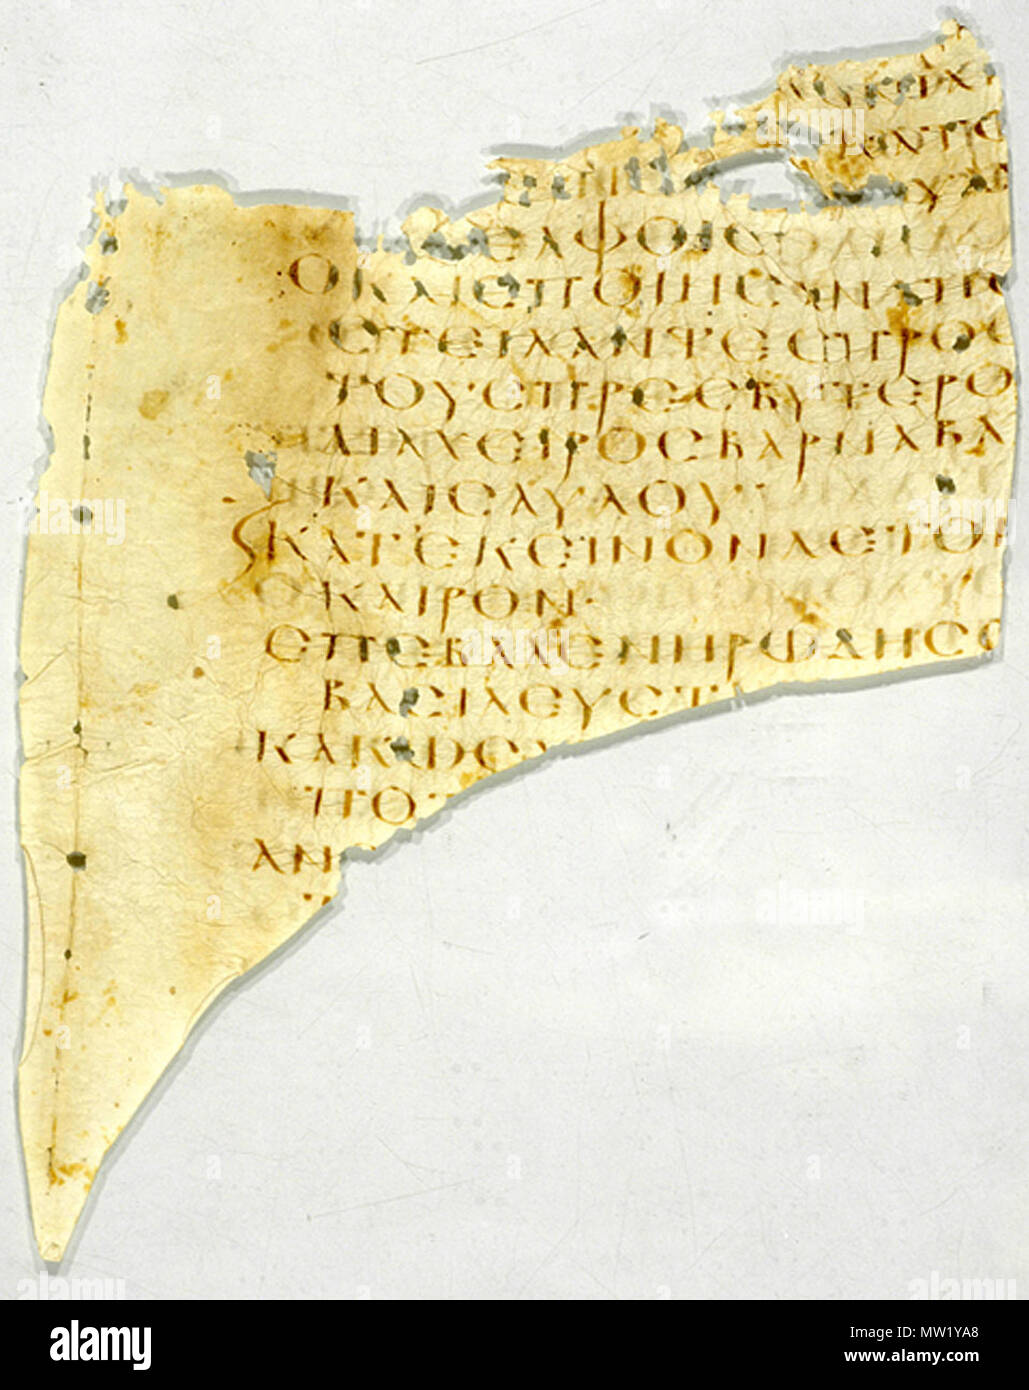 ΕΛΦΟΙΣ
ΟΚΑΙΕΠΟΙΗϹΑΝΑΠΟ
ϹΤΕΙΛΑΝΤΕϹΠΡΟϹ
ΤΟΥϹΠΡΕϹΒΥΤΕΡΟ
ΔΙΑΧΕΙΡΟϹΒΑΡΝΑΒΑ
ΚΑΙϹΑΥΛΟΥ
ΚΑΤΕΚΕΙΝΟΝΔΕΤΟΝ
ΚΑΙΡΟΝ·
ΕΠΕΒΑΛΕΝΗΡΩΔΗϹΟ
ΒΑϹΙΛΕΥϹΤ
ΚΑΚΩϹ
ΑΠΟΤ
ΑΝ
alamy
Image ID: MW1YA8
www.alamy.com